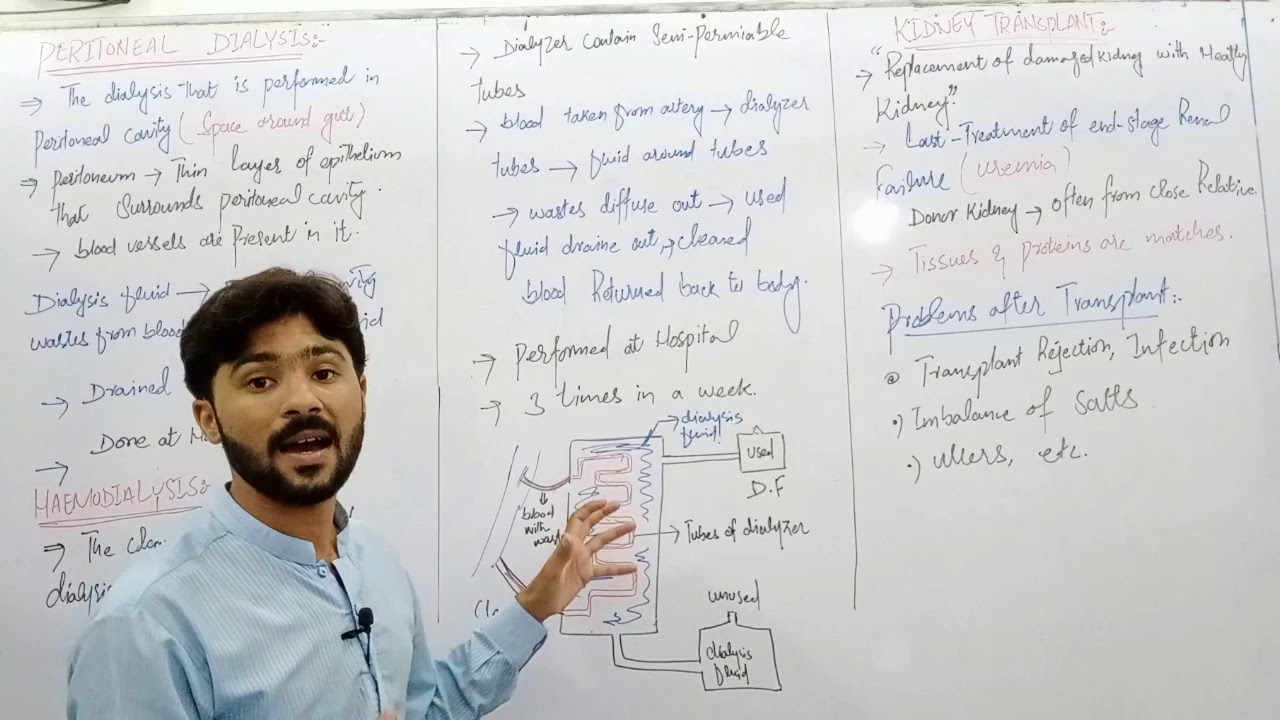 PERITONEAL DIALYSIS:-
⇒ The dialysis that is performed in
Peritoneal cavity (Space around gut)
⇒ Peritoneum → Thin layers of epithelium
that Surrounds peritoneal cavity.
→ blood vessels are Present in it.
Dialysis fluid →
wastes from blood
→ Drained
→ Done at
HAEMODIALYSIS:-
⇒ The
dialysis
→ Dialyzer Contain Semi-Permiable
tubes
→ blood taken from artery → dialyzer
tubes → fluid around tubes
→ wastes diffuse out → used
fluid draine out, → cleared
blood Returned back to body.
→ Performed at Hospital
→ 3 times in a week.
→ dialysis
fluid
used
D.F
blood
with
→ Tubes of dialyzer
unused
dialysis
fluid
KIDNEY TRANSPLANT:-
→ "Replacement of damaged Kidney with Healthy
Kidney."
→ Last-Treatment of end-stage Renal
Failure (uremia)
Donor Kidney → often from close Relative.
→ Tissues & proteins are matches.
Problems after Transplant:-
Transplant Rejection, Infection
•) Imbalance of Salts
•) ulcers, etc.